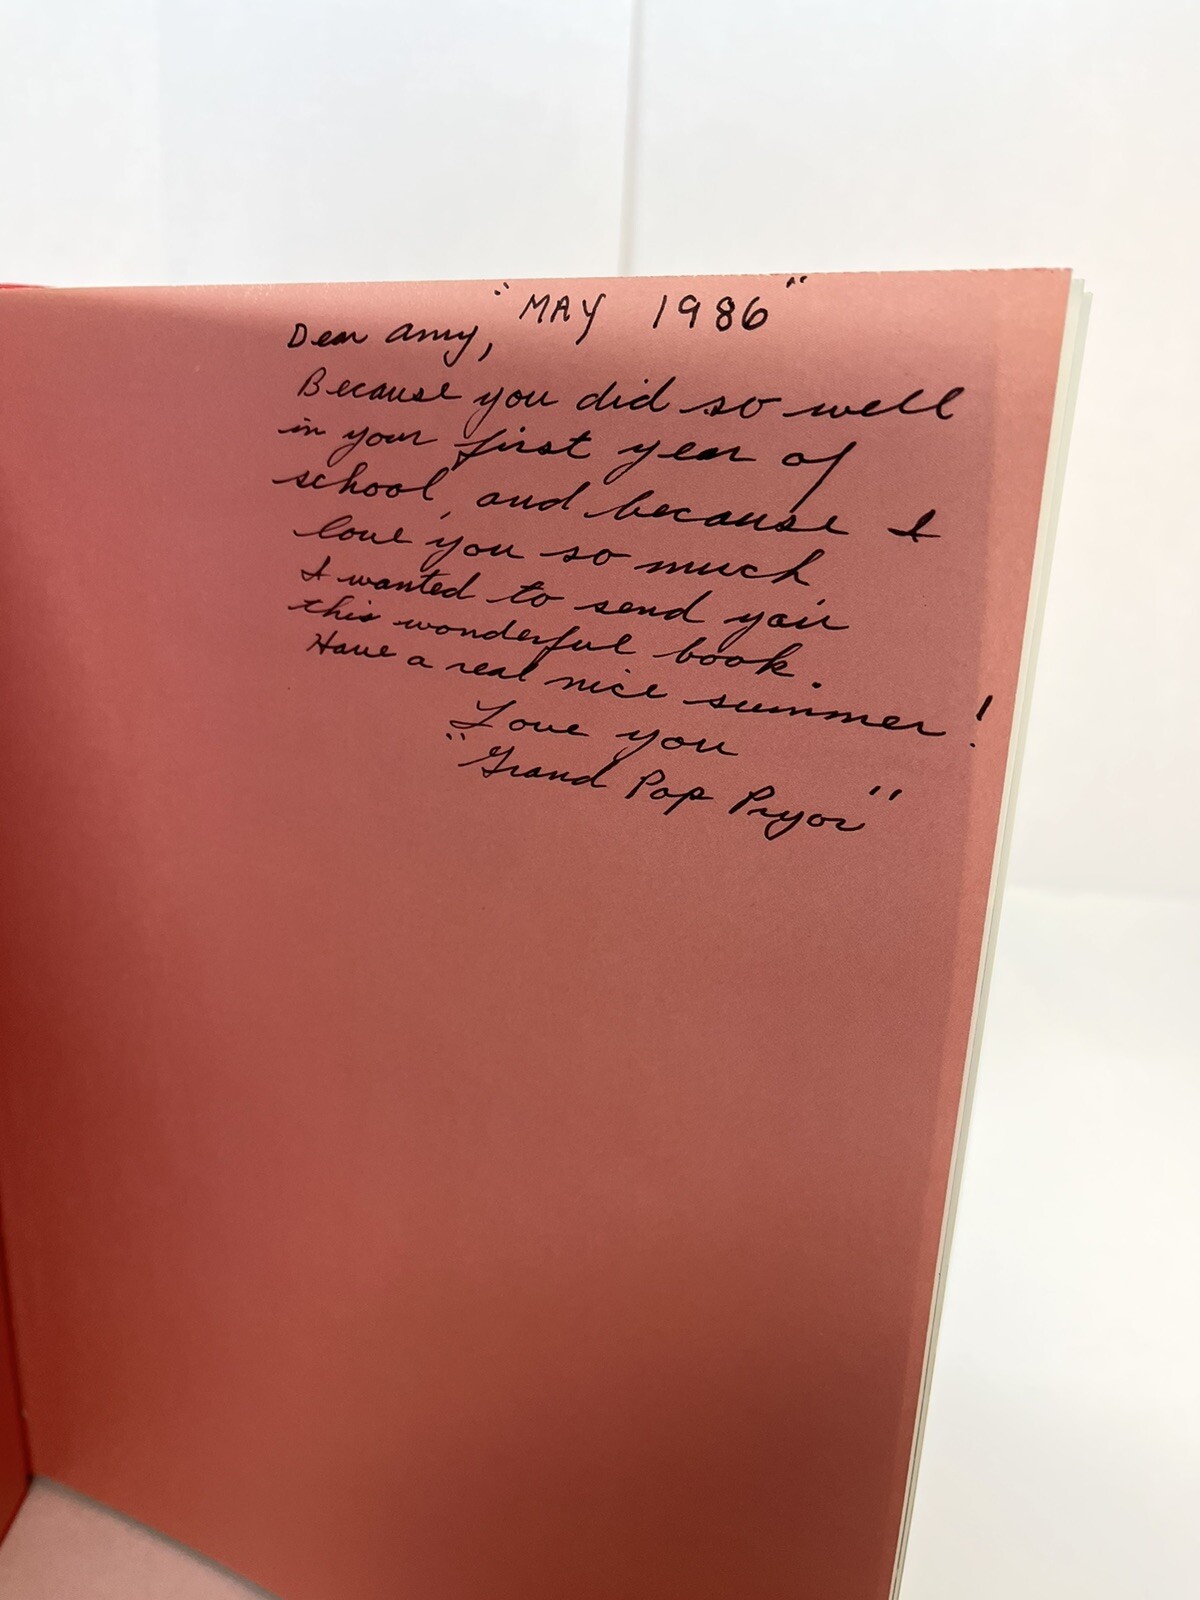 "MAY 1986"
Dear Amy,
Because you did so well
in your first year of
school, and because I
love you so much
I wanted to send you
this wonderful book.
Have a real nice summer!
Love you
"Grand Pop Pryor"